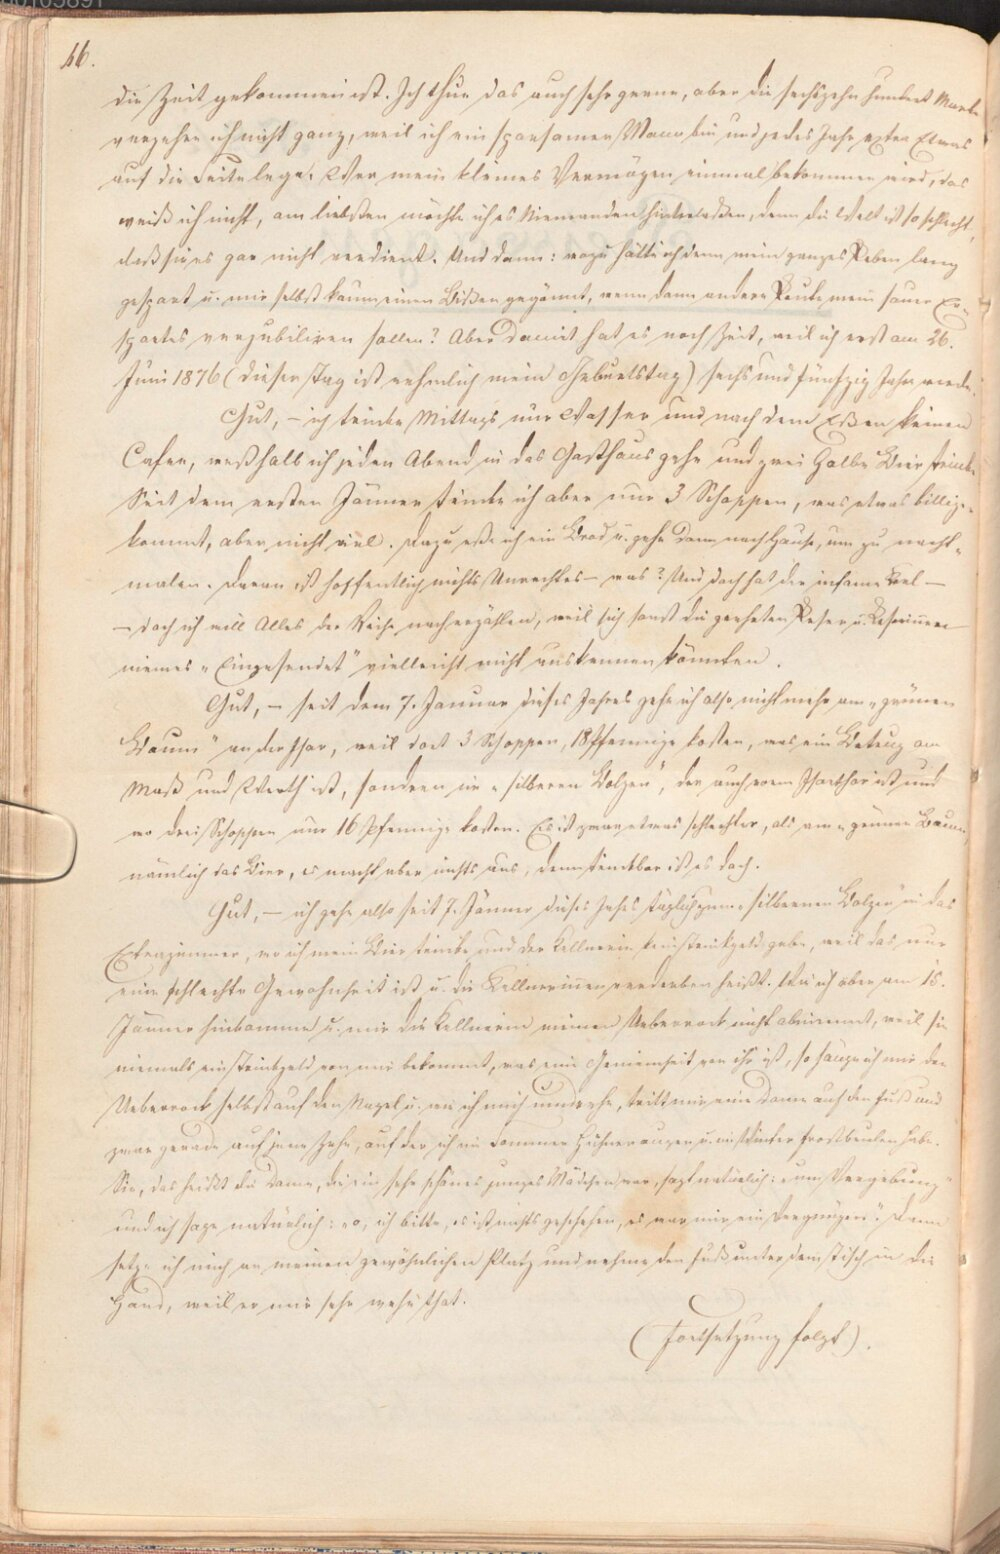 46.
die Zeit gekommen ist. Ich thue das auch sehr gerne, aber die sechszehn hundert Mark
verzehre ich nicht ganz, weil ich ein sparsamer Mann bin und jedes Jahr extra Etwas
auf die Seite lege. Wer mein kleines Vermögen einmal bekommen wird, das
weiß ich nicht, am liebsten möchte ich es Niemanden hinterlaßen, denn die Welt ist so schlecht,
daß sie es gar nicht verdient. Und dann: wozu hätte ich denn mein ganzes Leben lang
gespart u. mir selbst kaum einen Bißen gegönnt, wenn dann andere Leute mein sauer Er-
spartes verjubiliren sollen? Aber damit hat es noch Zeit, weil ich erst am 26.
Juni 1876 (dieser Tag ist nehmlich mein Geburtstag) sechs und fünfzig Jahr werde.
Gut, – ich trinke Mittags nur Wasser und nach dem Eßen keinen
Cafee, weßhalb ich jeden Abend in das Gasthaus gehe und zwei Halbe Bier trinke.
Seit dem ersten Jänner trinke ich aber nur 3 Schoppen, was etwas billiger
kommt, aber nicht viel. Dazu eße ich ein Brod u. gehe dann nach Hause, um zu nacht-
malen. Daran ist hoffentlich nichts Unrechtes – was? Und doch hat der infame Kerl –
– doch ich will Alles der Reihe nach erzählen, weil sich sonst die geehrten Leser u. Leserinnen
meines „Eingesendet" vielleicht nicht auskennen könnten.
Gut, – seit dem 7. Januar dieses Jahres gehe ich also nicht mehr am „grünen
Baum" an der Isar, weil dort 3 Schoppen 18 Pfennige kosten, was ein Betrug am
Maß und Werth ist, sondern im „silbernen Bolzen", der auch vorm Isarthor ist und
wo drei Schoppen nur 16 Pfennige kosten. Es ist zwar etwas schlechter, als am „grünen Baum",
nämlich das Bier, es macht aber nichts aus, denn trinkbar ist es doch.
Gut, – ich gehe also seit 7. Jänner dieses Jahres täglich zum „silbernen Bolzen" in das
Extrazimmer, wo ich mein Bier trinke und der Kellnerin kein Trinkgeld gebe, weil das nur
eine schlechte Gewohnheit ist u. die Kellnerinen verderben heißt. Wie ich aber am 15.
Jänner hinkomme u. mir die Kellnerin meinen Ueberrock nicht abnimmt, weil sie
niemals ein Trinkgeld von mir bekommt, was eine Gemeinheit von ihr ist, so hänge ich mir den
Ueberrock selbst auf den Nagel u. wie ich mich umdrehe, tritt mir eine Dame auf den Fuß und
zwar gerade auf jene Zehe, auf der ich im Sommer Hühneraugen u. im Winter Frostbeulen habe.
Sie, das heißt die Dame, die ein sehr schönes junges Mädchen war, sagt natürlich: „um Vergebung"
und ich sage natürlich: „o, ich bitte, es ist nichts geschehen, es war mir ein Vergnügen". Dann
setze ich mich an meinen gewöhnlichen Platz und nehme den Fuß unter dem Tisch in die
Hand, weil er mir sehr wehe that.
(Fortsetzung folgt).